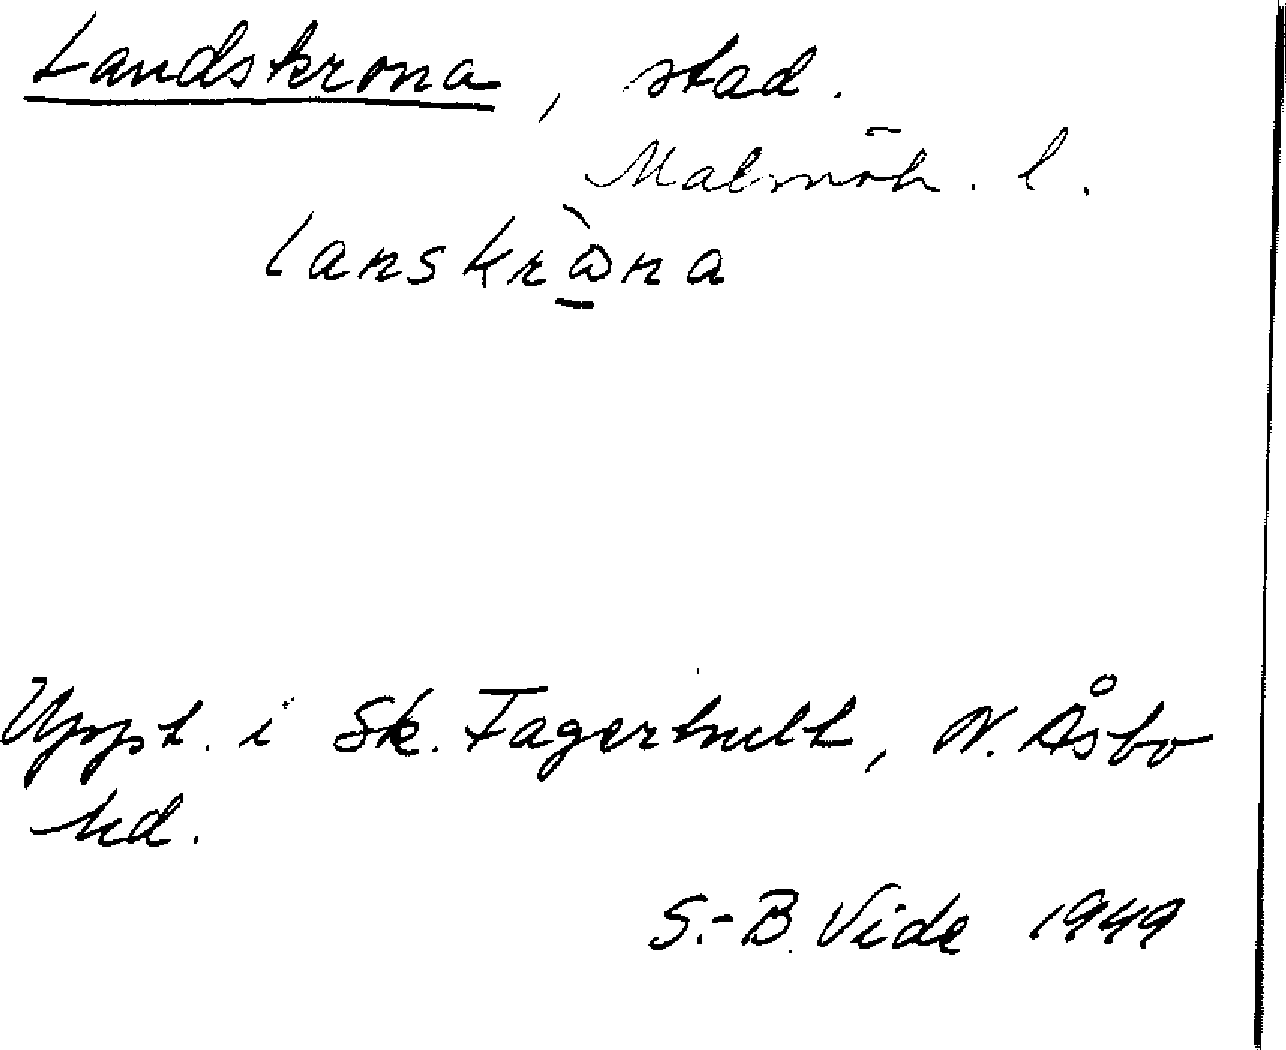 Landskrona, stad.
Malmöh. l.
lanskròna
Uppt. i Sk. Fagerhult, N. Åsbo
hd.
S.-B. Vide 1949